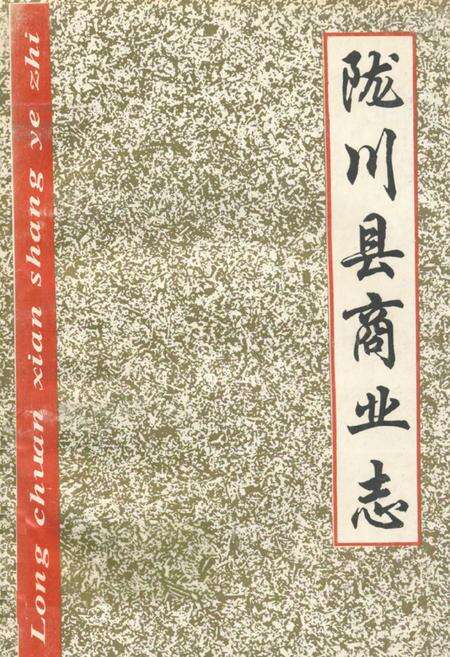 陇川县商业志
Long chuan xian shang ye zhi